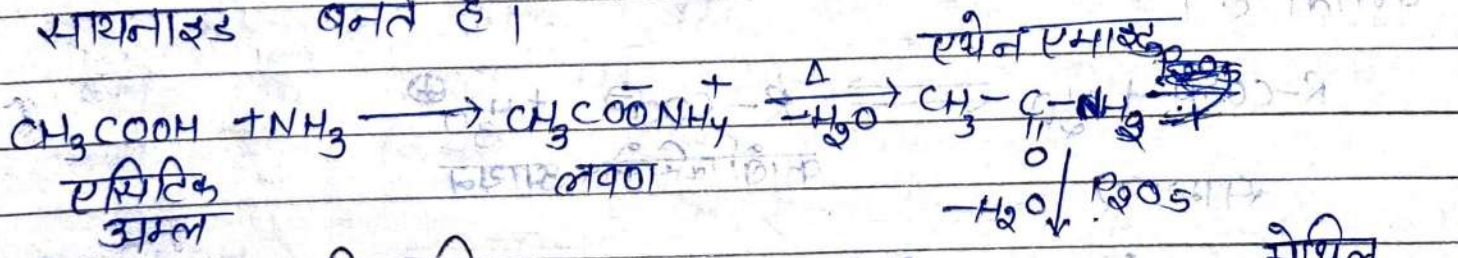 सायनाइड बनते है।
एथेन एमाइड
CH₃COOH + NH₃ ⟶ CH₃COO⁻NH₄⁺ —Δ/−H₂O→ CH₃ − C − NH₂
एसिटिक लवण O
अम्ल −H₂O ↓ P₂O₅
मेथिल